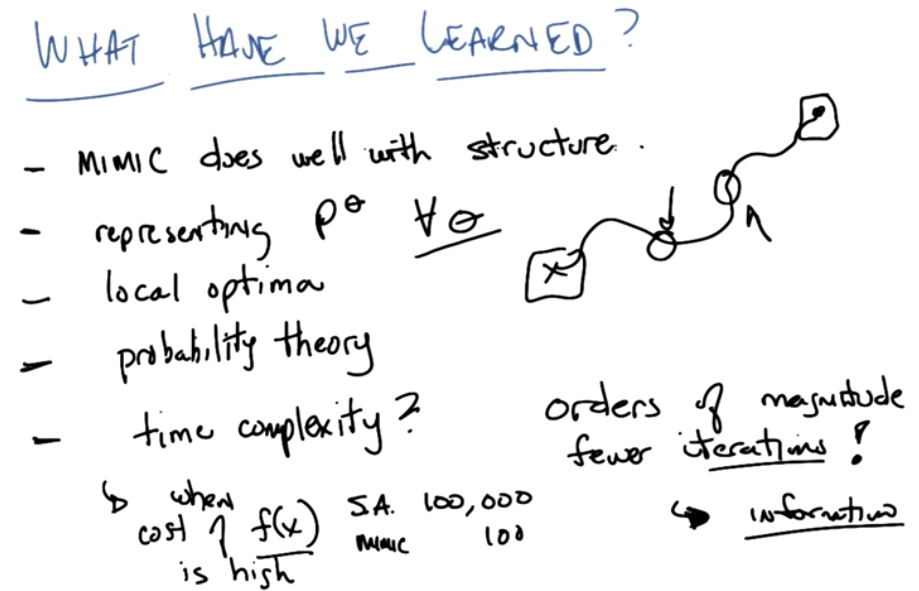 WHAT HAVE WE LEARNED?
- MIMIC does well with structure.
- representing P^θ ∀θ
- local optima
- probability theory
- time complexity?
↳ when
cost of f(x)
is high
S.A. 100,000
MIMIC 100
orders of magnitude
fewer iterations!
↳ information
x